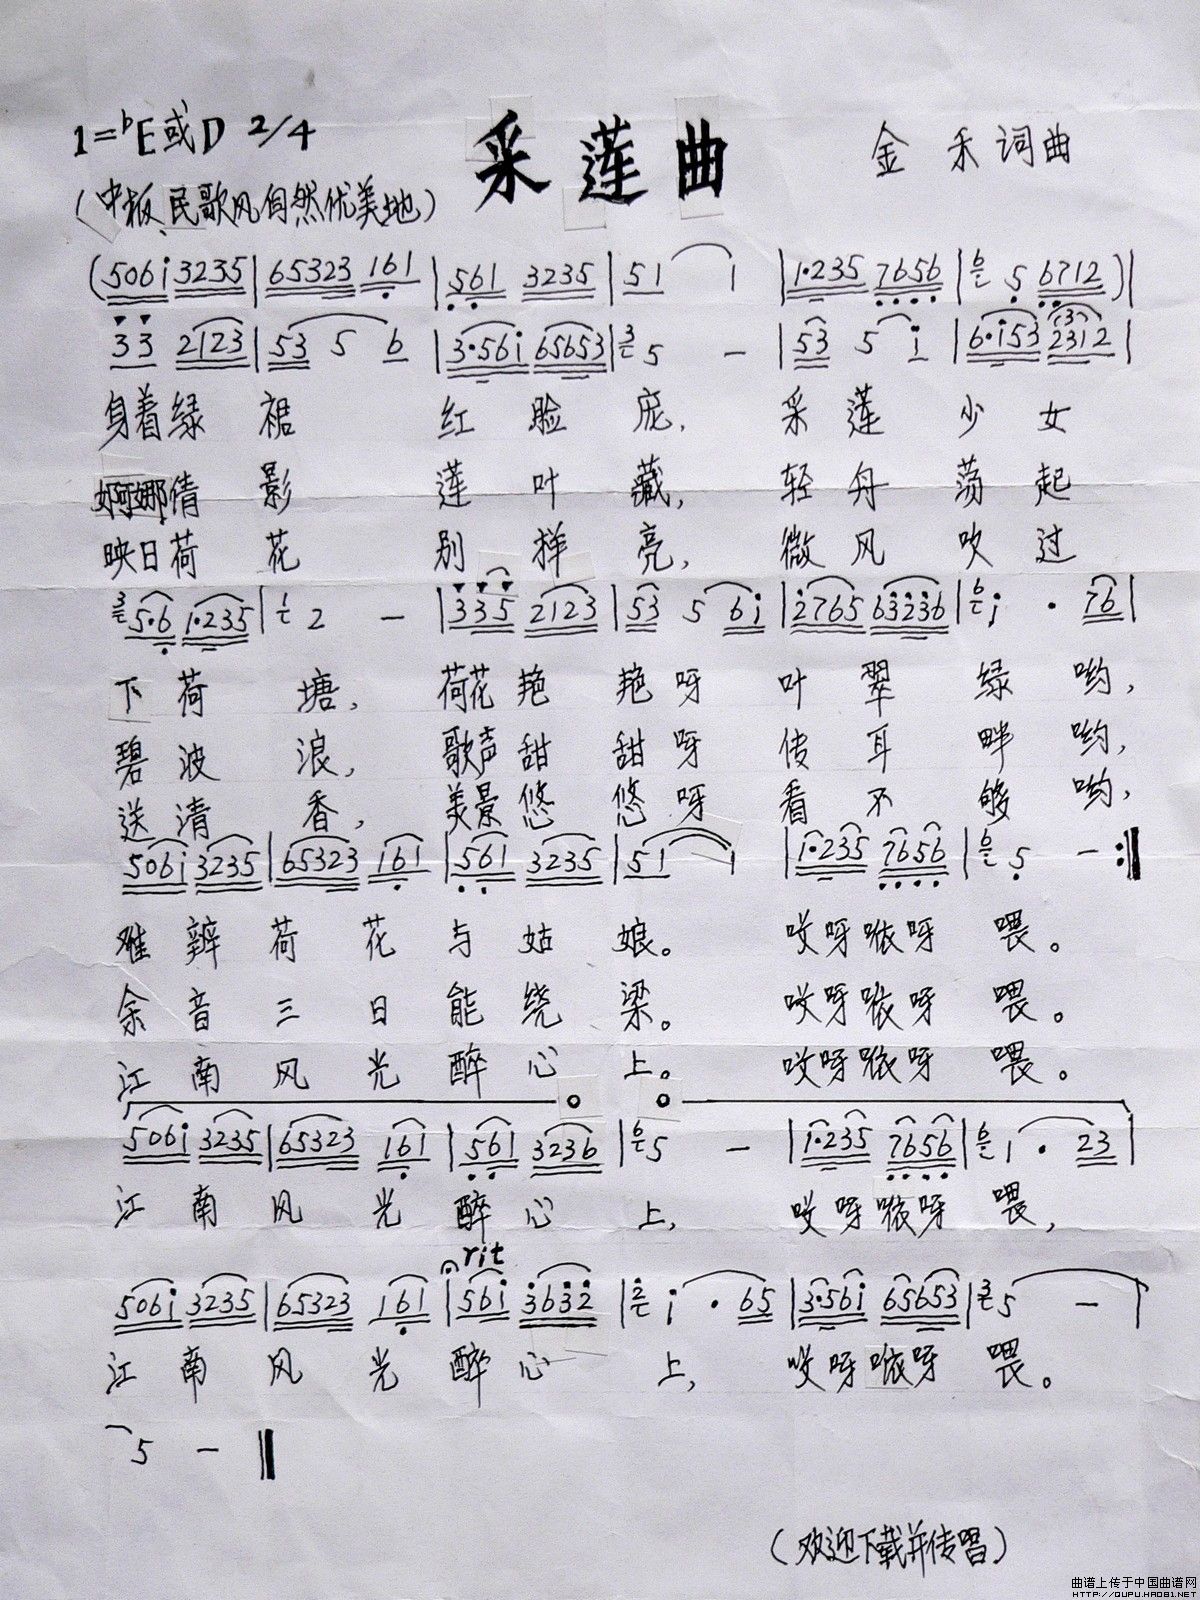 1=♭E或D 2/4
采莲曲
金禾词曲
(中板 民歌风 自然优美地)
(506i 3235 | 65323 161 | 561 3235 | 51 1 | 1·235 7656 | 6 5 6712 ) |
33 2123 | 53 5 6 | 3·56i 65653 | 3 5 — | 53 5 i | 6·i53 2312 |
身着绿裙 红脸庞, 采莲少女
婀娜倩影 莲叶藏, 轻舟荡起
映日荷花 别样亮, 微风吹过
3 5·6 1·235 | 1 2 — | 335 2123 | 53 5 6i | 2765 63236 | 6 i · 76 |
下荷塘, 荷花艳艳呀叶翠绿哟,
碧波浪, 歌声甜甜呀传耳畔哟,
送清香, 美景悠悠呀看不够哟,
506i 3235 | 65323 161 | 561 3235 | 51 1 | 1·235 7656 | 6 5 — :‖
难辨荷花与姑娘。 哎呀咴呀喂。
余音三日能绕梁。 哎呀咴呀喂。
江南风光醉心上。 哎呀咴呀喂。
506i 3235 | 65323 161 | 561 3236 | 6 5 — | 1·235 7656 | 6 1 · 23 |
江南风光醉心上, 哎呀咴呀喂,
rit
506i 3235 | 65323 161 | 56i 3632 | 2 i · 65 | 3·56i 65653 | 3 5 — |
江南风光醉心上, 哎呀咴呀喂。
5 — ‖
(欢迎下载并传唱)
曲谱上传于中国曲谱网
HTTP://QUPU.HAO81.NET